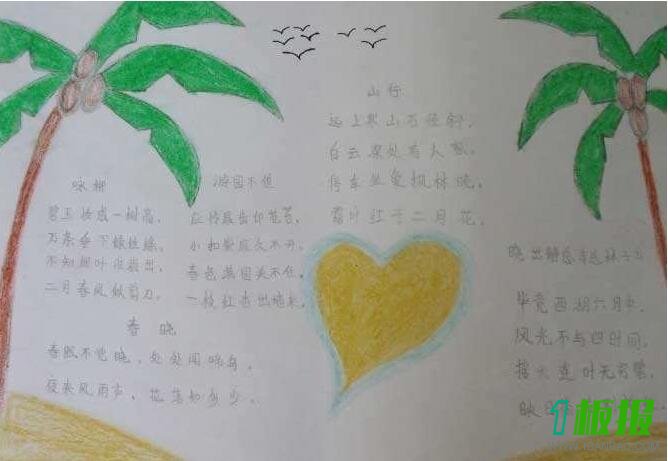 山行
远上寒山石径斜,
白云深处有人家,
停车坐爱枫林晚,
霜叶红于二月花,
咏柳
碧玉妆成一树高,
万条垂下绿丝绦,
不知细叶谁裁出,
二月春风似剪刀,
游园不值
应怜屐齿印苍苔,
小扣柴扉久不开,
春色满园关不住,
一枝红杏出墙来,
春晓
春眠不觉晓,处处闻啼鸟,
夜来风雨声,花落知多少,
晓出净慈寺送林子方
毕竟西湖六月中,
风光不与四时同,
接天莲叶无穷碧,
映日
1板报